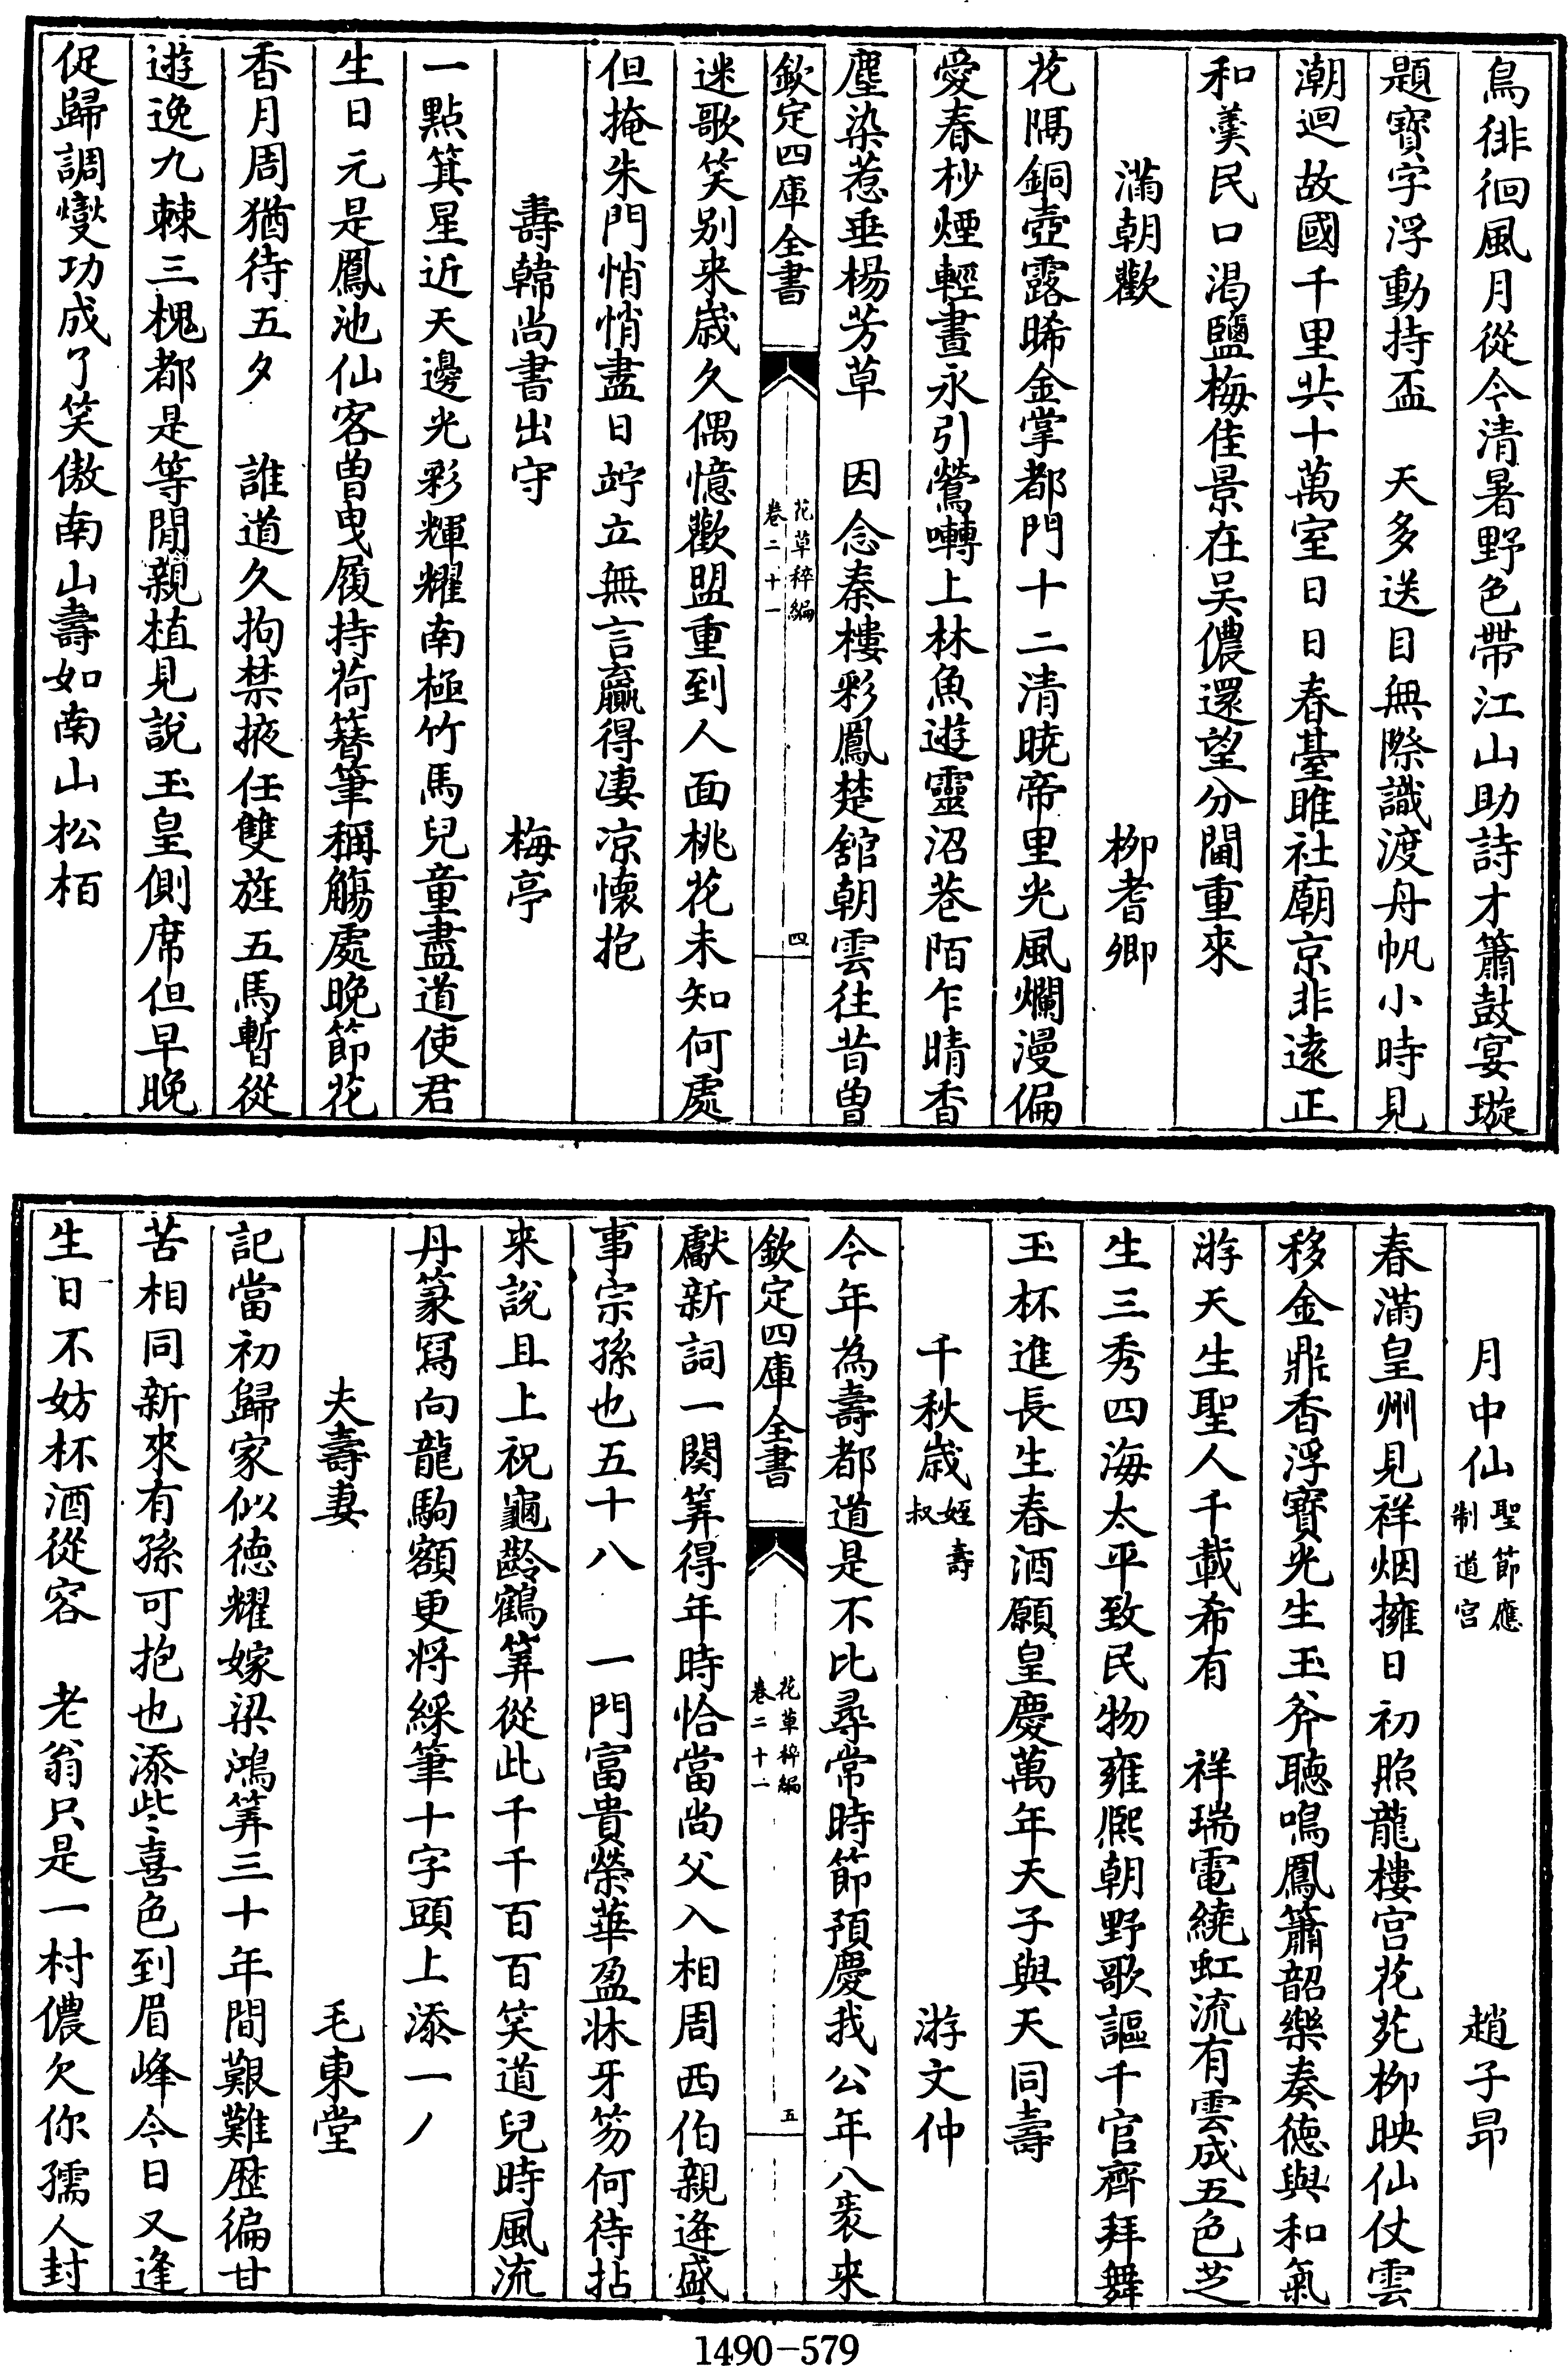 鳥徘徊風月從今清暑野色帶江山助詩才簫鼓宴璇
題寳字浮動持盃　天多送目無際識渡舟帆小時見
潮迴故國千里共十萬室日日春臺雎社廟京非逺正
和羮民口渴鹽梅佳景在吴儂還望分閫重來
滿朝歡　柳耆卿
花隔銅壺露晞金掌都門十二清曉帝里光風爛漫偏
愛春杪煙輕晝永引鶯囀上林魚遊靈沼巷陌乍晴香
塵染惹垂楊芳草　因念秦樓彩鳳楚舘朝雲往昔曽
欽定四庫全書　花草稡編　卷二十一　四
迷歌笑别来嵗久偶憶歡盟重到人面桃花未知何處
但掩朱門悄悄盡日竚立無言贏得凄凉懷抱
夀韓尚書出守　梅亭
一點箕星近天邊光彩輝耀南極竹馬兒童盡道使君
生日元是鳳池仙客曽曳履持荷簮筆稱觴處晚節花
香月周猶待五夕　誰道久拘禁掖任雙旌五馬暫從
遊逸九棘三槐都是等閒親植見說玉皇側席但早晚
促歸調爕功成了笑傲南山夀如南山松栢
月中仙 聖節應制道宫　趙子昂
春滿皇州見祥烟擁日初照龍樓宫花苑柳映仙仗雲
移金鼎香浮寳光生玉斧聽鳴鳳簫韶樂奏徳與和氣
游天生聖人千載希有　祥瑞電繞虹流有雲成五色芝
生三秀四海太平致民物雍熙朝野歌謳千官齊拜舞
玉杯進長生春酒願皇慶萬年天子與天同夀
千秋嵗 姪夀叔　游文仲
今年為夀都道是不比尋常時節預慶我公年八袠来
欽定四庫全書　花草稡編　卷二十一　五
獻新詞一闋筭得年時恰當尚父入相周西伯親逢盛
事宗孫也五十八　一門富貴榮華盈牀牙笏何待拈
来說且上祝龜齡鶴筭從此千千百百笑道兒時風流
丹篆冩向龍駒額更将綵筆十字頭上添一丿
夫夀妻　毛東堂
記當初歸家似徳耀嫁梁鴻筭三十年間艱難歴徧甘
苦相同新來有孫可抱也添些喜色到眉峰今日又逢
生日不妨杯酒從容　老翁只是一村儂欠你孺人封
1490-579